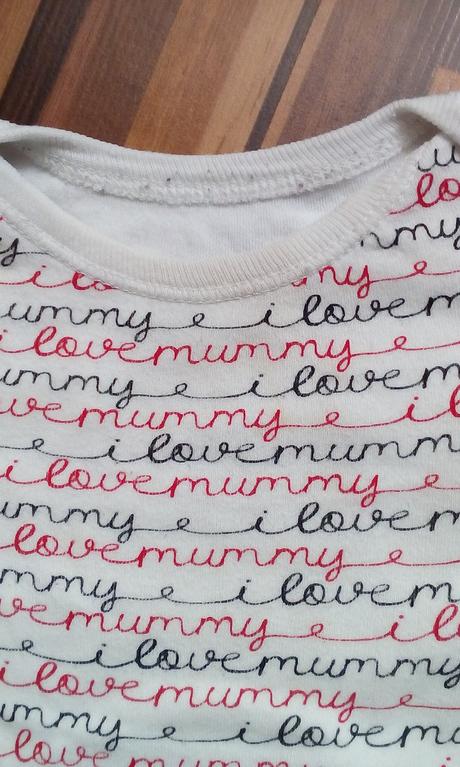 lo
mmy
i lo my
ummy i love m
i love mummy
ummy i love m
ve mummy i l
i love mumm
i love mummy
ummy i love m
love mummy
mmy i love m
ve mummy i l
i love mummy
i love mummy
ummy i love mu
love mummy